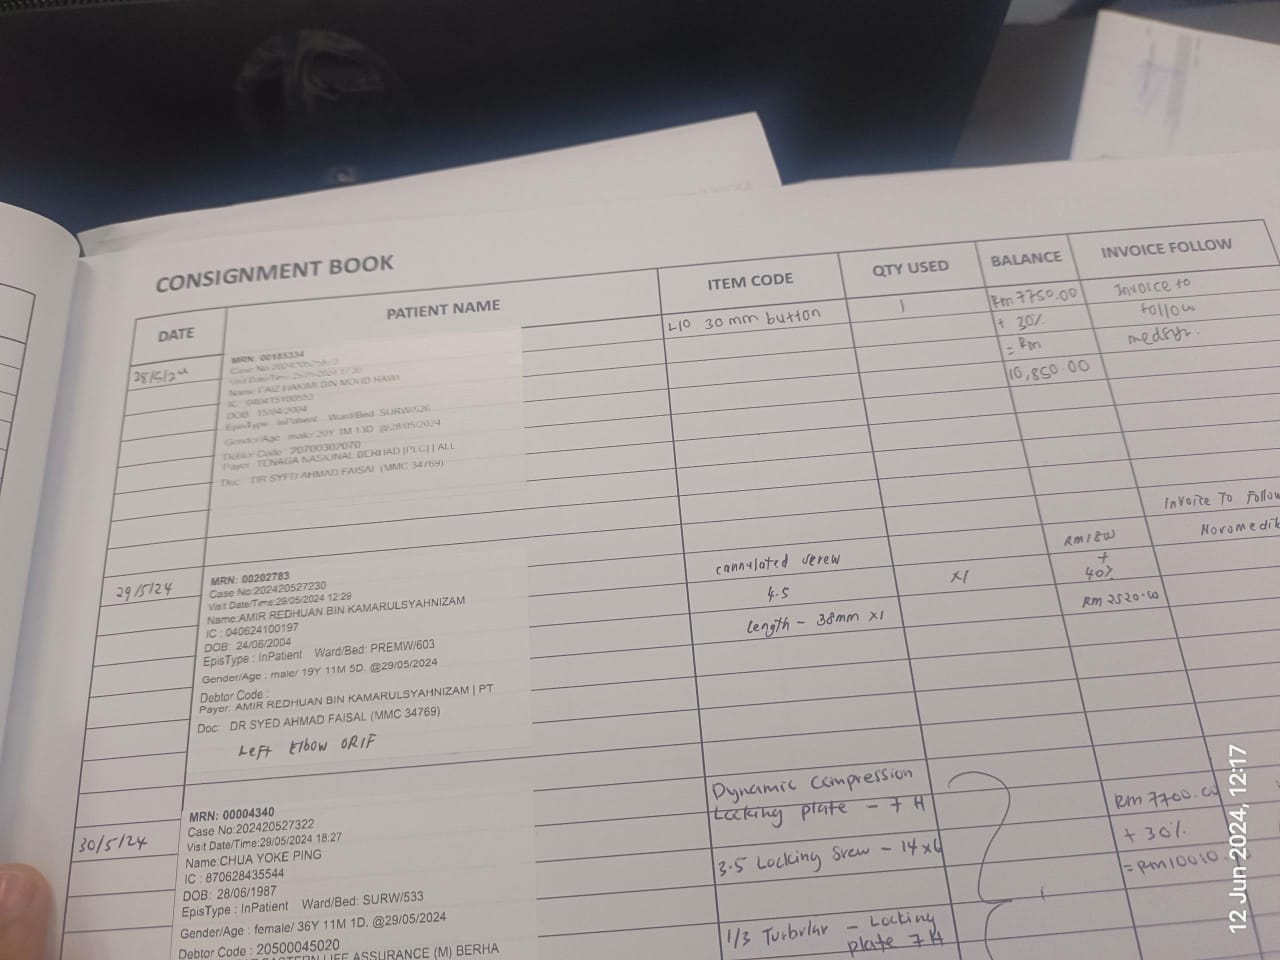 CONSIGNMENT BOOK
DATE
PATIENT NAME
ITEM CODE
QTY USED
BALANCE
INVOICE FOLLOW
28/5/24
MRN: 00185334
Case No
Name: FAIZ HAKIMI BIN MOHD RAWI
IC : 040415100553
DOB 15/04/2004
EpisType : InPatient Ward/Bed: SURW/526
Gender/Age male/ 20Y 1M 13D. @28/05/2024
Debtor Code : 20700302070
Payer: TENAGA NASIONAL BERHAD (PLC) | ALL
Doc: DR SYED AHMAD FAISAL (MMC 34769)
30 mm button
1
Rm 7750.00
+ 30%
= Rm
10,850.00
Invoice to
follow
29/5/24
MRN: 00202783
Case No:202420527230
Visit Date/Time:29/05/2024 12:29
Name:AMIR REDHUAN BIN KAMARULSYAHNIZAM
IC : 040624100197
DOB: 24/06/2004
EpisType : InPatient Ward/Bed: PREMW/603
Gender/Age : male/ 19Y 11M 5D. @29/05/2024
Debtor Code :
Payer: AMIR REDHUAN BIN KAMARULSYAHNIZAM | PT
Doc: DR SYED AHMAD FAISAL (MMC 34769)
Left Elbow ORIF
cannulated screw
4.5
length - 38mm x1
x1
+
40%
RM 2520.00
Invoice To Follow
Novomedik
30/5/24
MRN: 00004340
Case No:202420527322
Visit Date/Time:29/05/2024 18:27
Name:CHUA YOKE PING
IC : 870628435544
DOB: 28/06/1987
EpisType : InPatient Ward/Bed: SURW/533
Gender/Age : female/ 36Y 11M 1D. @29/05/2024
Debtor Code : 20500045020
LIFE ASSURANCE (M) BERHA
Dynamic Compression
Locking plate - 7 H
3.5 Locking Srew - 14 x6
1/3 Turbular - Locking
plate 7 H
1
Rm 7700.00
+ 30%
= Rm 10010.
12 Jun 2024, 12:17